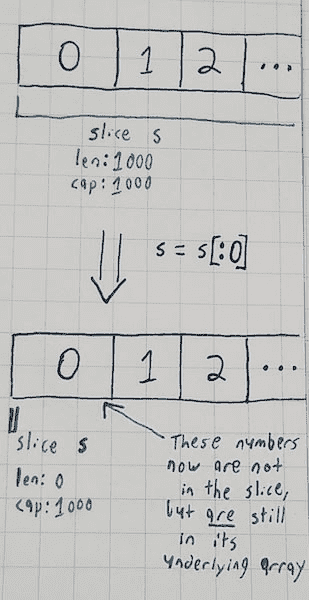 0 1 2 ...
slice s
len: 1000
cap: 1000
s = s[:0]
0 1 2 ...
slice s
len: 0
cap: 1000
These numbers
now are not
in the slice,
but are still
in its
underlying array